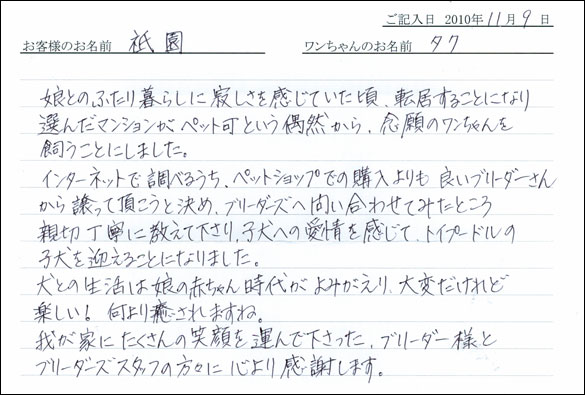 ご記入日 2010年11月9日
お客様のお名前 祇園 ワンちゃんのお名前 タク
娘とのふたり暮らしに寂しさを感じていた頃、転居することになり
選んだマンションがペット可という偶然から、念願のワンちゃんを
飼うことにしました。
インターネットで調べるうち、ペットショップでの購入よりも良いブリーダーさん
から譲って頂こうと決め、ブリーダーズへ問い合わせてみたところ
親切丁寧に教えて下さり、子犬への愛情を感じて、トイプードルの
子犬を迎えることになりました。
犬との生活は娘の赤ちゃん時代がよみがえり、大変だけれど
楽しい！何より癒されますね。
我が家にたくさんの笑顔を運んで下さった、ブリーダー様と
ブリーダーズスタッフの方々に心より感謝します。